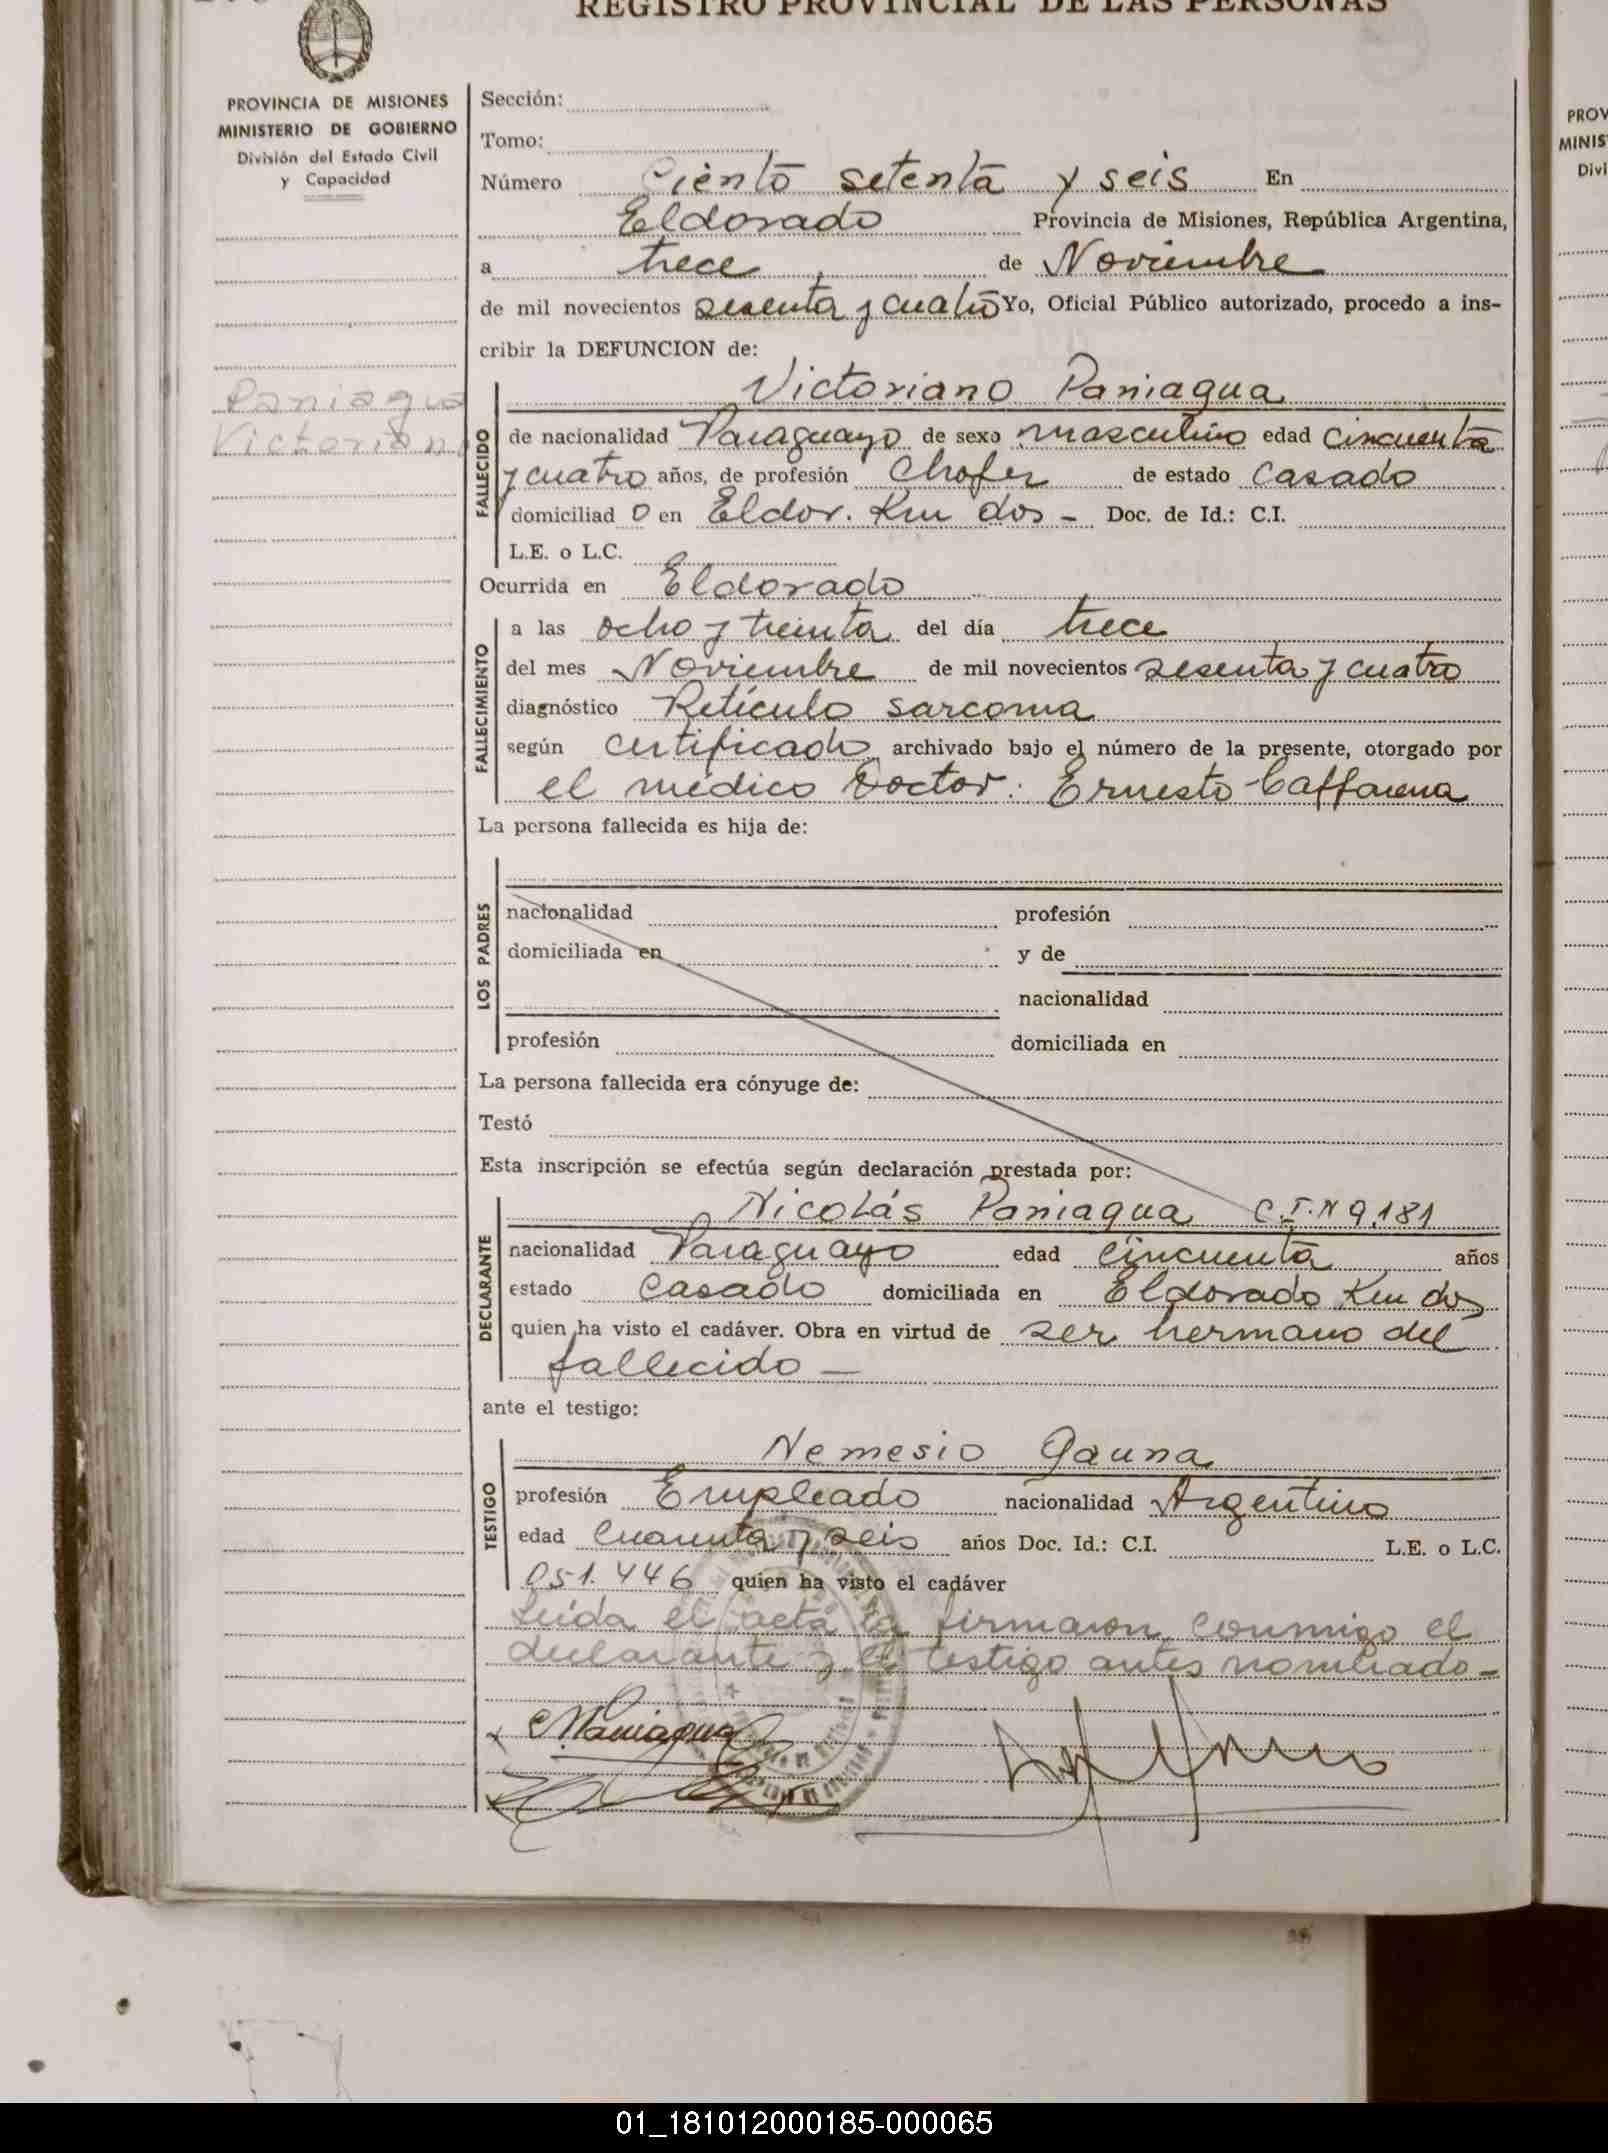 REGISTRO PROVINCIAL DE LAS PERSONAS
PROVINCIA DE MISIONES
MINISTERIO DE GOBIERNO
División del Estado Civil
y Capacidad
Paniagua
Victoriano
Sección:
Tomo:
Número Ciento setenta y seis En
Eldorado Provincia de Misiones, República Argentina,
a trece de Noviembre
de mil novecientos sesenta y cuatro Yo, Oficial Público autorizado, procedo a ins-
cribir la DEFUNCION de:
FALLECIDO
Victoriano Paniagua
de nacionalidad Paraguayo de sexo masculino edad cincuenta
y cuatro años, de profesión Chofer de estado casado
domiciliad o en Eldor. Km dos - Doc. de Id.: C.I.
L.E. o L.C.
Ocurrida en Eldorado
FALLECIMIENTO
a las ocho y treinta del día trece
del mes Noviembre de mil novecientos sesenta y cuatro
diagnóstico Retículo sarcoma
según certificado archivado bajo el número de la presente, otorgado por
el médico Doctor: Ernesto Caffarena
La persona fallecida es hija de:
LOS PADRES
nacionalidad profesión
domiciliada en y de
nacionalidad
profesión domiciliada en
La persona fallecida era cónyuge de:
Testó
Esta inscripción se efectúa según declaración prestada por:
DECLARANTE
Nicolás Paniagua C.I. Nº 9.181
nacionalidad Paraguayo edad cincuenta años
estado casado domiciliada en Eldorado Km dos
quien ha visto el cadáver. Obra en virtud de ser hermano del
fallecido -
ante el testigo:
TESTIGO
Nemesio Gauna
profesión Empleado nacionalidad Argentino
edad cuarenta y seis años Doc. Id.: C.I. L.E. o L.C.
051.446 quien ha visto el cadáver
Leída el acta la firmaron conmigo el
declarante y el testigo antes nombrado -
N. Paniagua
PROV
MINIS
Divi
01_181012000185-000065